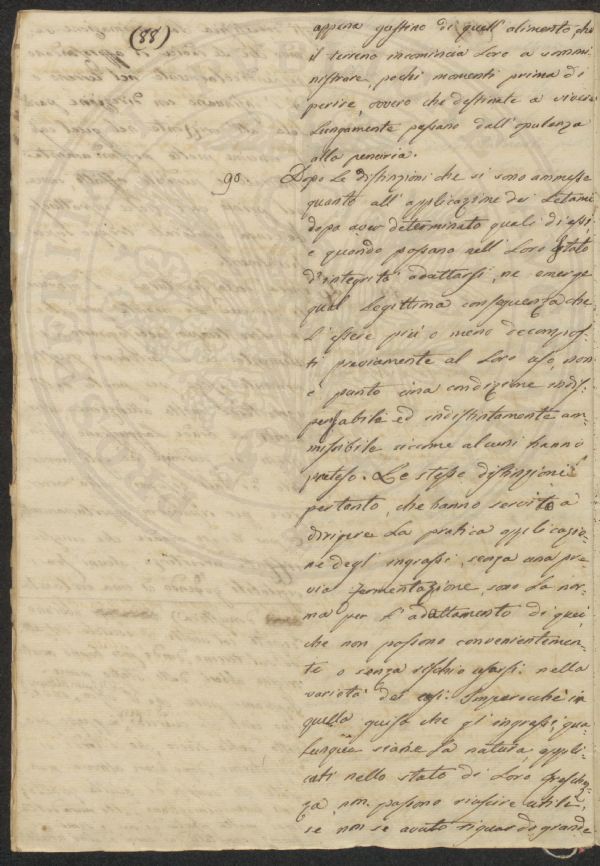 (88)
appena gustino di quell' alimento che
il terreno incomincia Loro a sommi-
nistrare, pochi momenti prima di
perire, ovvero che destinate a vivere
Lungamente passano dall' opulenza
alla penuria.
90. Dopo Le distinzioni che si sono ammesse
quanto all' applicazione dei Letami
dopo aver determinato quali di essi,
e quando possano nell' Loro stato
d' integrità adattarsi, ne emerge
qual Legittima conseguenza che
L' essere più o meno decompos-
ti previamente al Loro uso, non
è punto una condizione indis-
pensabile ed indistintamente am-
missibile siccome alcuni hanno
preteso. Le stesse distinzioni
pertanto, che hanno servito a
dirigere La pratica applicazio-
ne degl' ingrassi, senza una pre-
via fermentazione, sono La nor-
ma per L' adattamento di quei
che non possono convenientemen-
te o senza rischio usarsi nella
varietà dei casi. Imperocchè in
quella guisa che gl' ingrassi, qua-
lunque siane la natura, appli-
cati nello stato di Loro freschez-
za non possono riuscire utili,
se non se avuto riguardo grande